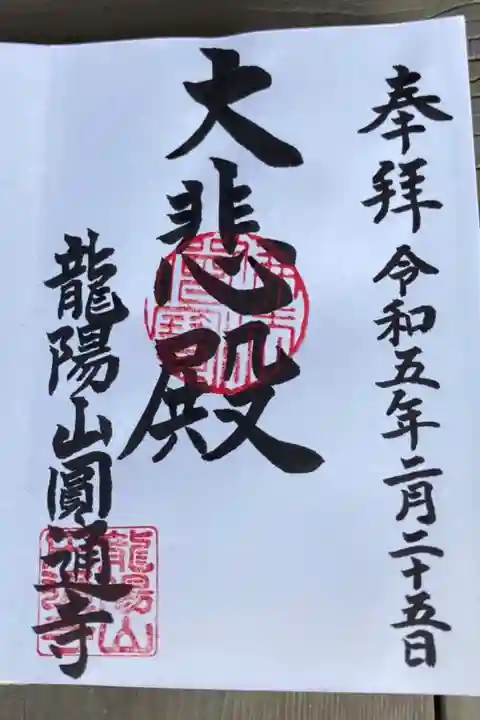 奉拝 令和五年二月二十五日
大悲殿
龍陽山圓通寺
佛法僧寶
龍陽山